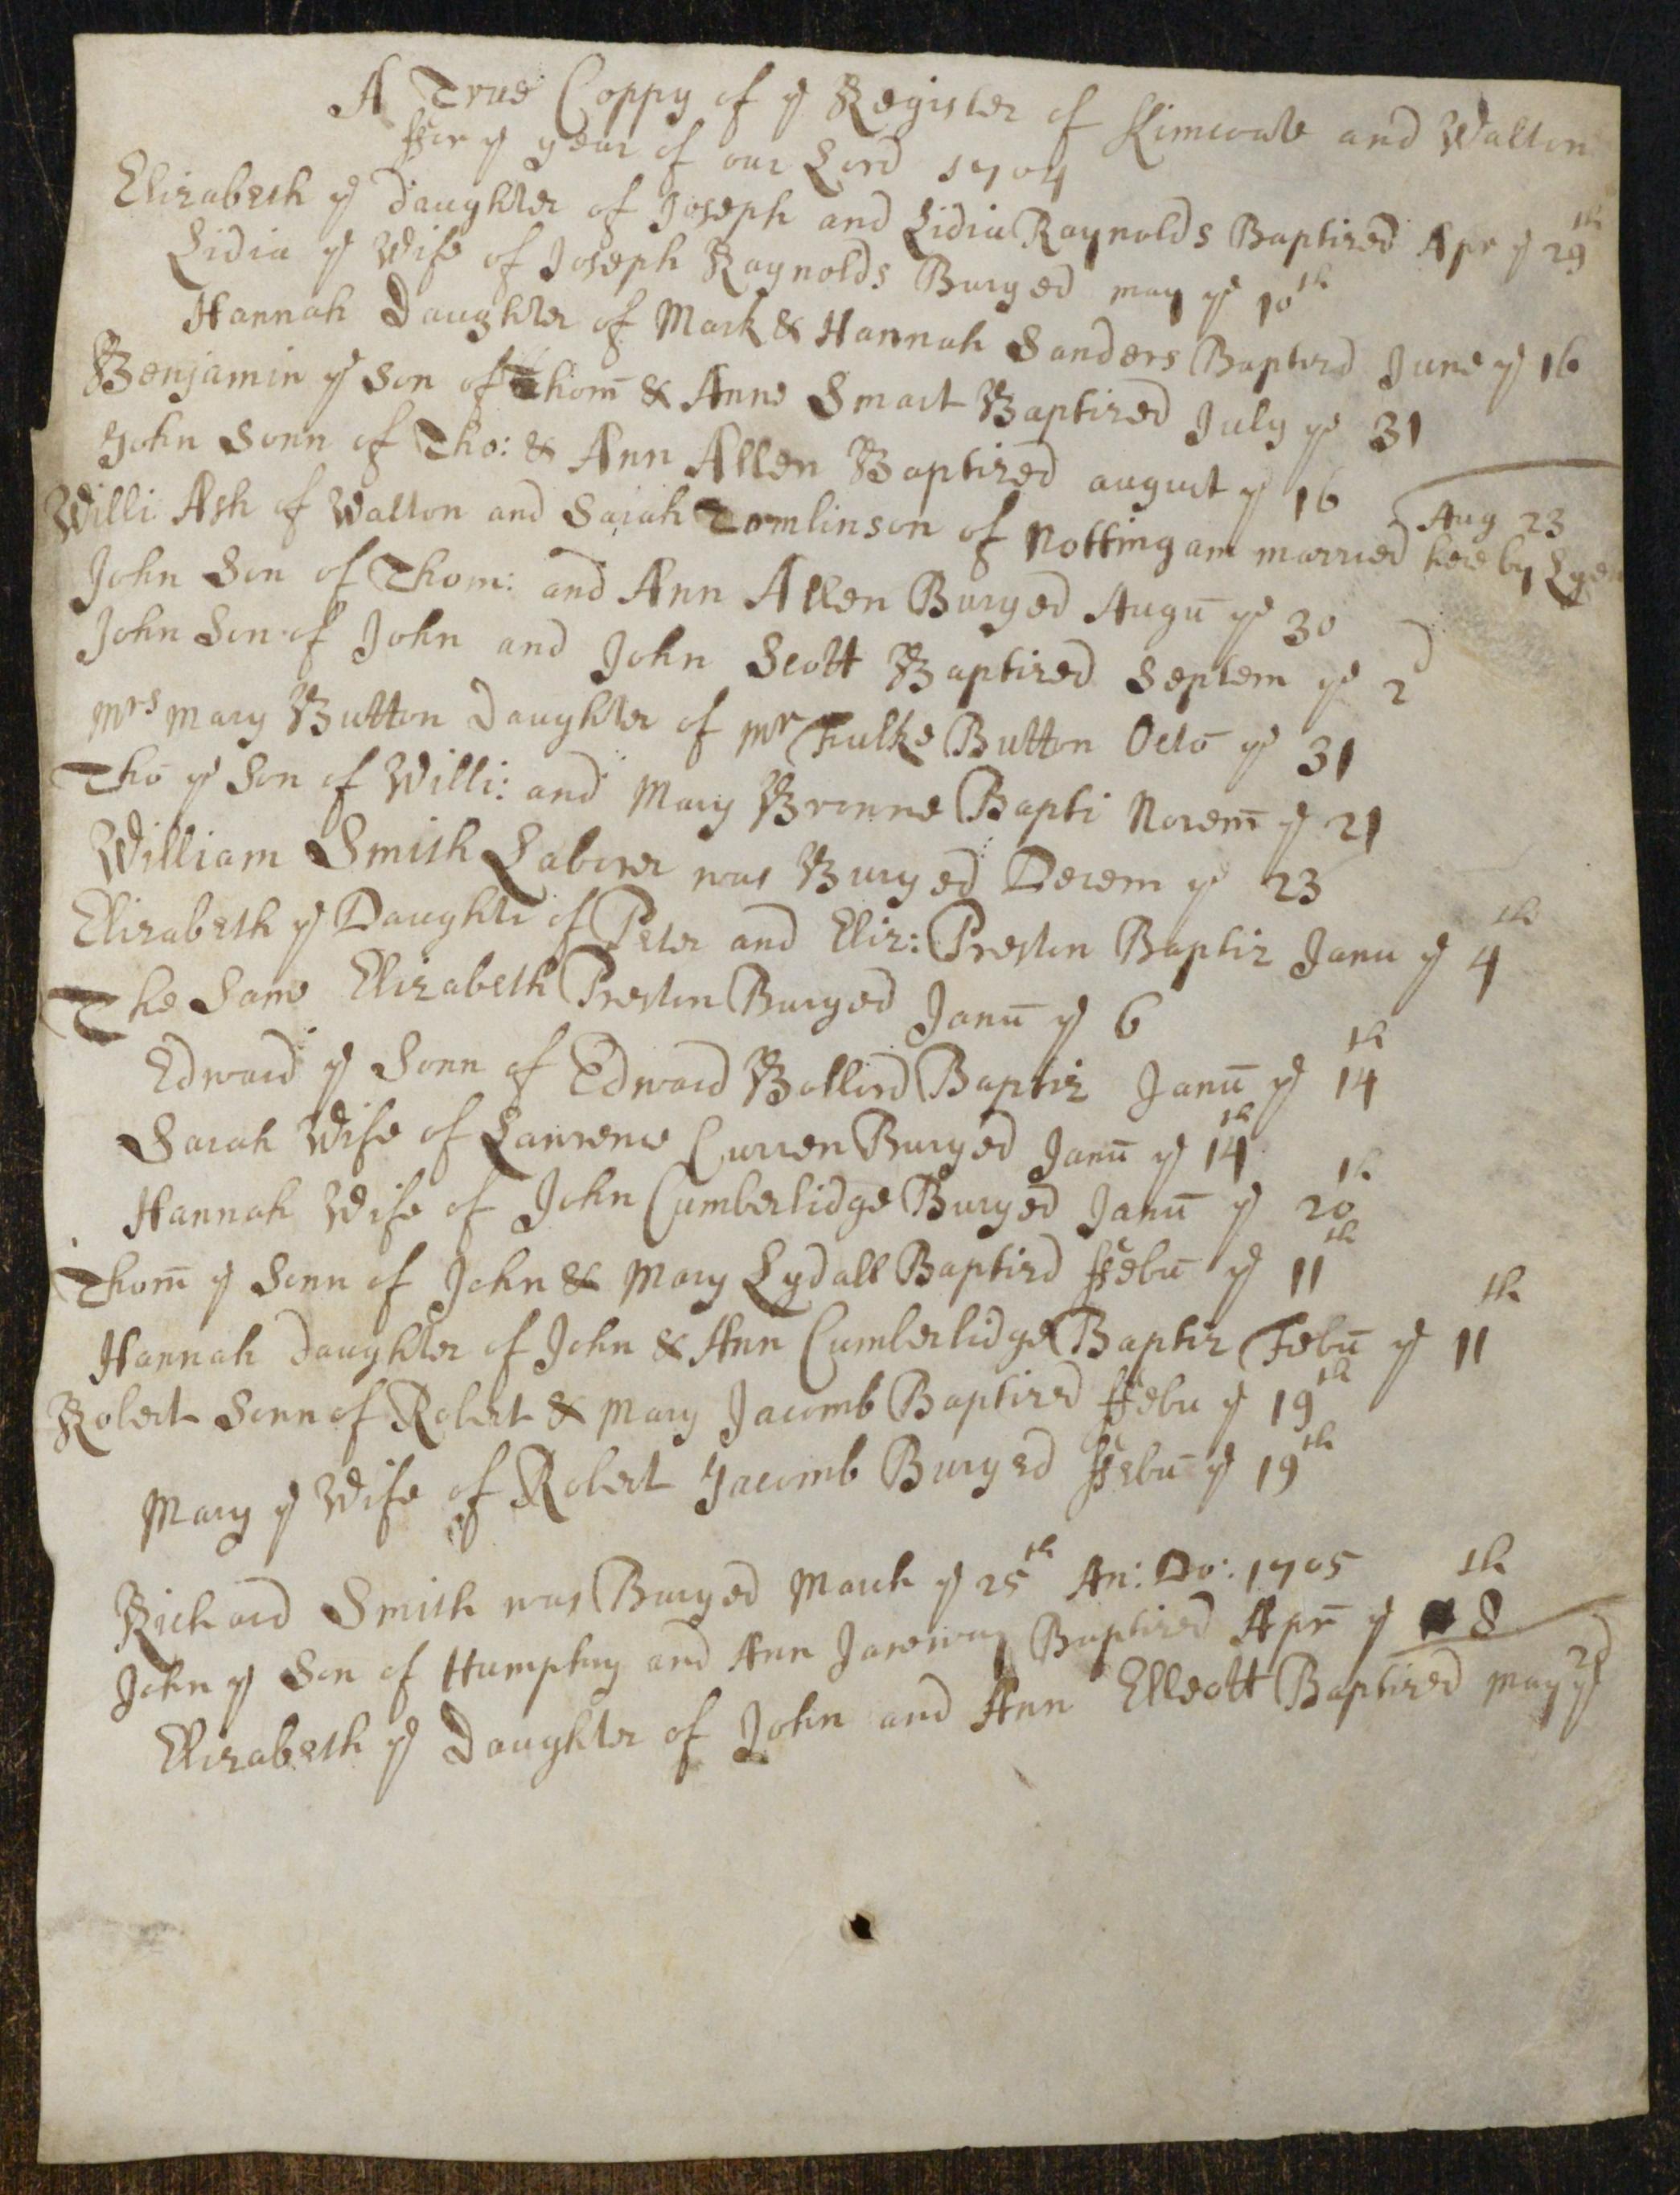 A True Coppy of ye Register of Kimcoate and Walton
ffor ye year of our Lord 1704
Elizabeth ye daughter of Joseph and Lidia Raynolds Baptized Apr ye 29th
Lidia ye Wife of Joseph Raynolds Buryed may ye 10th
Hannah Daughter of Mark & Hannah Sanders Baptizd June ye 16
Benjamin ye Son of Thom̄ & Anne Smart Baptized July ye 31
John Sonn of Tho: & Ann Allen Baptized august ye 16
Willi: Ash of Walton and Sarah Tomlinson of Nottingam married here by Aug 23
John Son of Thom: and Ann Allen Buryed Augū ye 30
John Son of John and John Scott Baptized Septem ye 2d
Mrs Mary Button Daughter of Mr Fulke Button Octō ye 31
Thō ye Son of Willi: and Mary Bronne Bapti Novem̄ ye 21
William Smith Laborer was Buryed Decem ye 23
Elizabeth ye Daughtr of Peter and Eliz: Preston Baptiz Janu ye 4th
The Same Elizabeth Preston Buryed Janū ye 6
Edward ye Sonn of Edward Bollord Baptiz Janū ye 14th
Sarah Wife of Lawrence Curren Buryed Janū ye 14th
Hannah Wife of John Cumberlidge Buryed Janū ye 20th
Thom̄ ye Sonn of John & Mary Lydall Baptizd ffebū ye 11th
Hannah Daughter of John & Ann Cumberlidge Baptiz Febū ye 11th
Robert Sonn of Robert & Mary Jacomb Baptized ffebu ye 19th
Mary ye Wife of Robert Jacomb Buryed ffebū ye 19th
Richard Smith was Buryed March ye 25th An: Do: 1705
John ye Son of Humphry and Ann Janeway Baptized Apr̄ ye 8th
Elizabeth ye Daughter of John and Ann Elleott Baptized may ye 2d